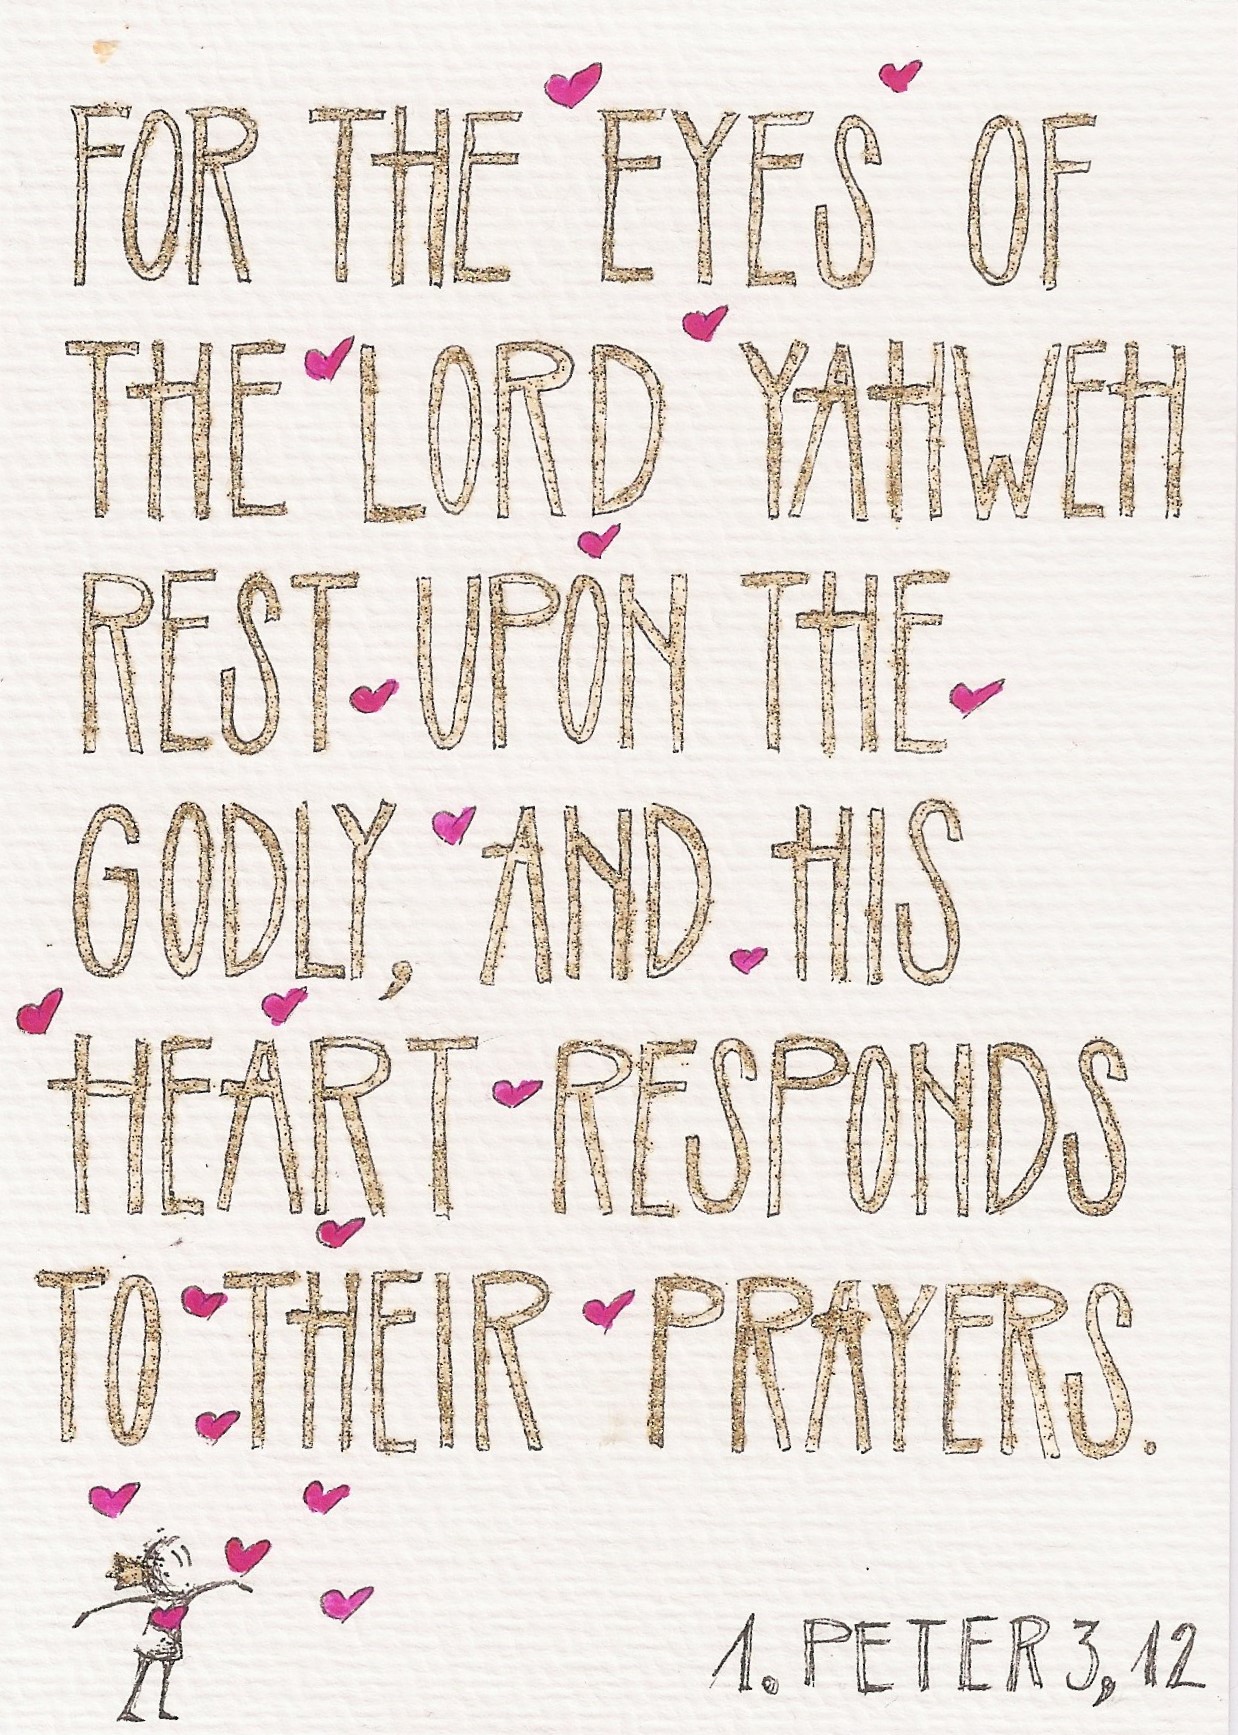 FOR THE EYES OF
THE LORD YAHWEH
REST UPON THE
GODLY, AND HIS
HEART RESPONDS
TO THEIR PRAYERS.
1. PETER 3, 12